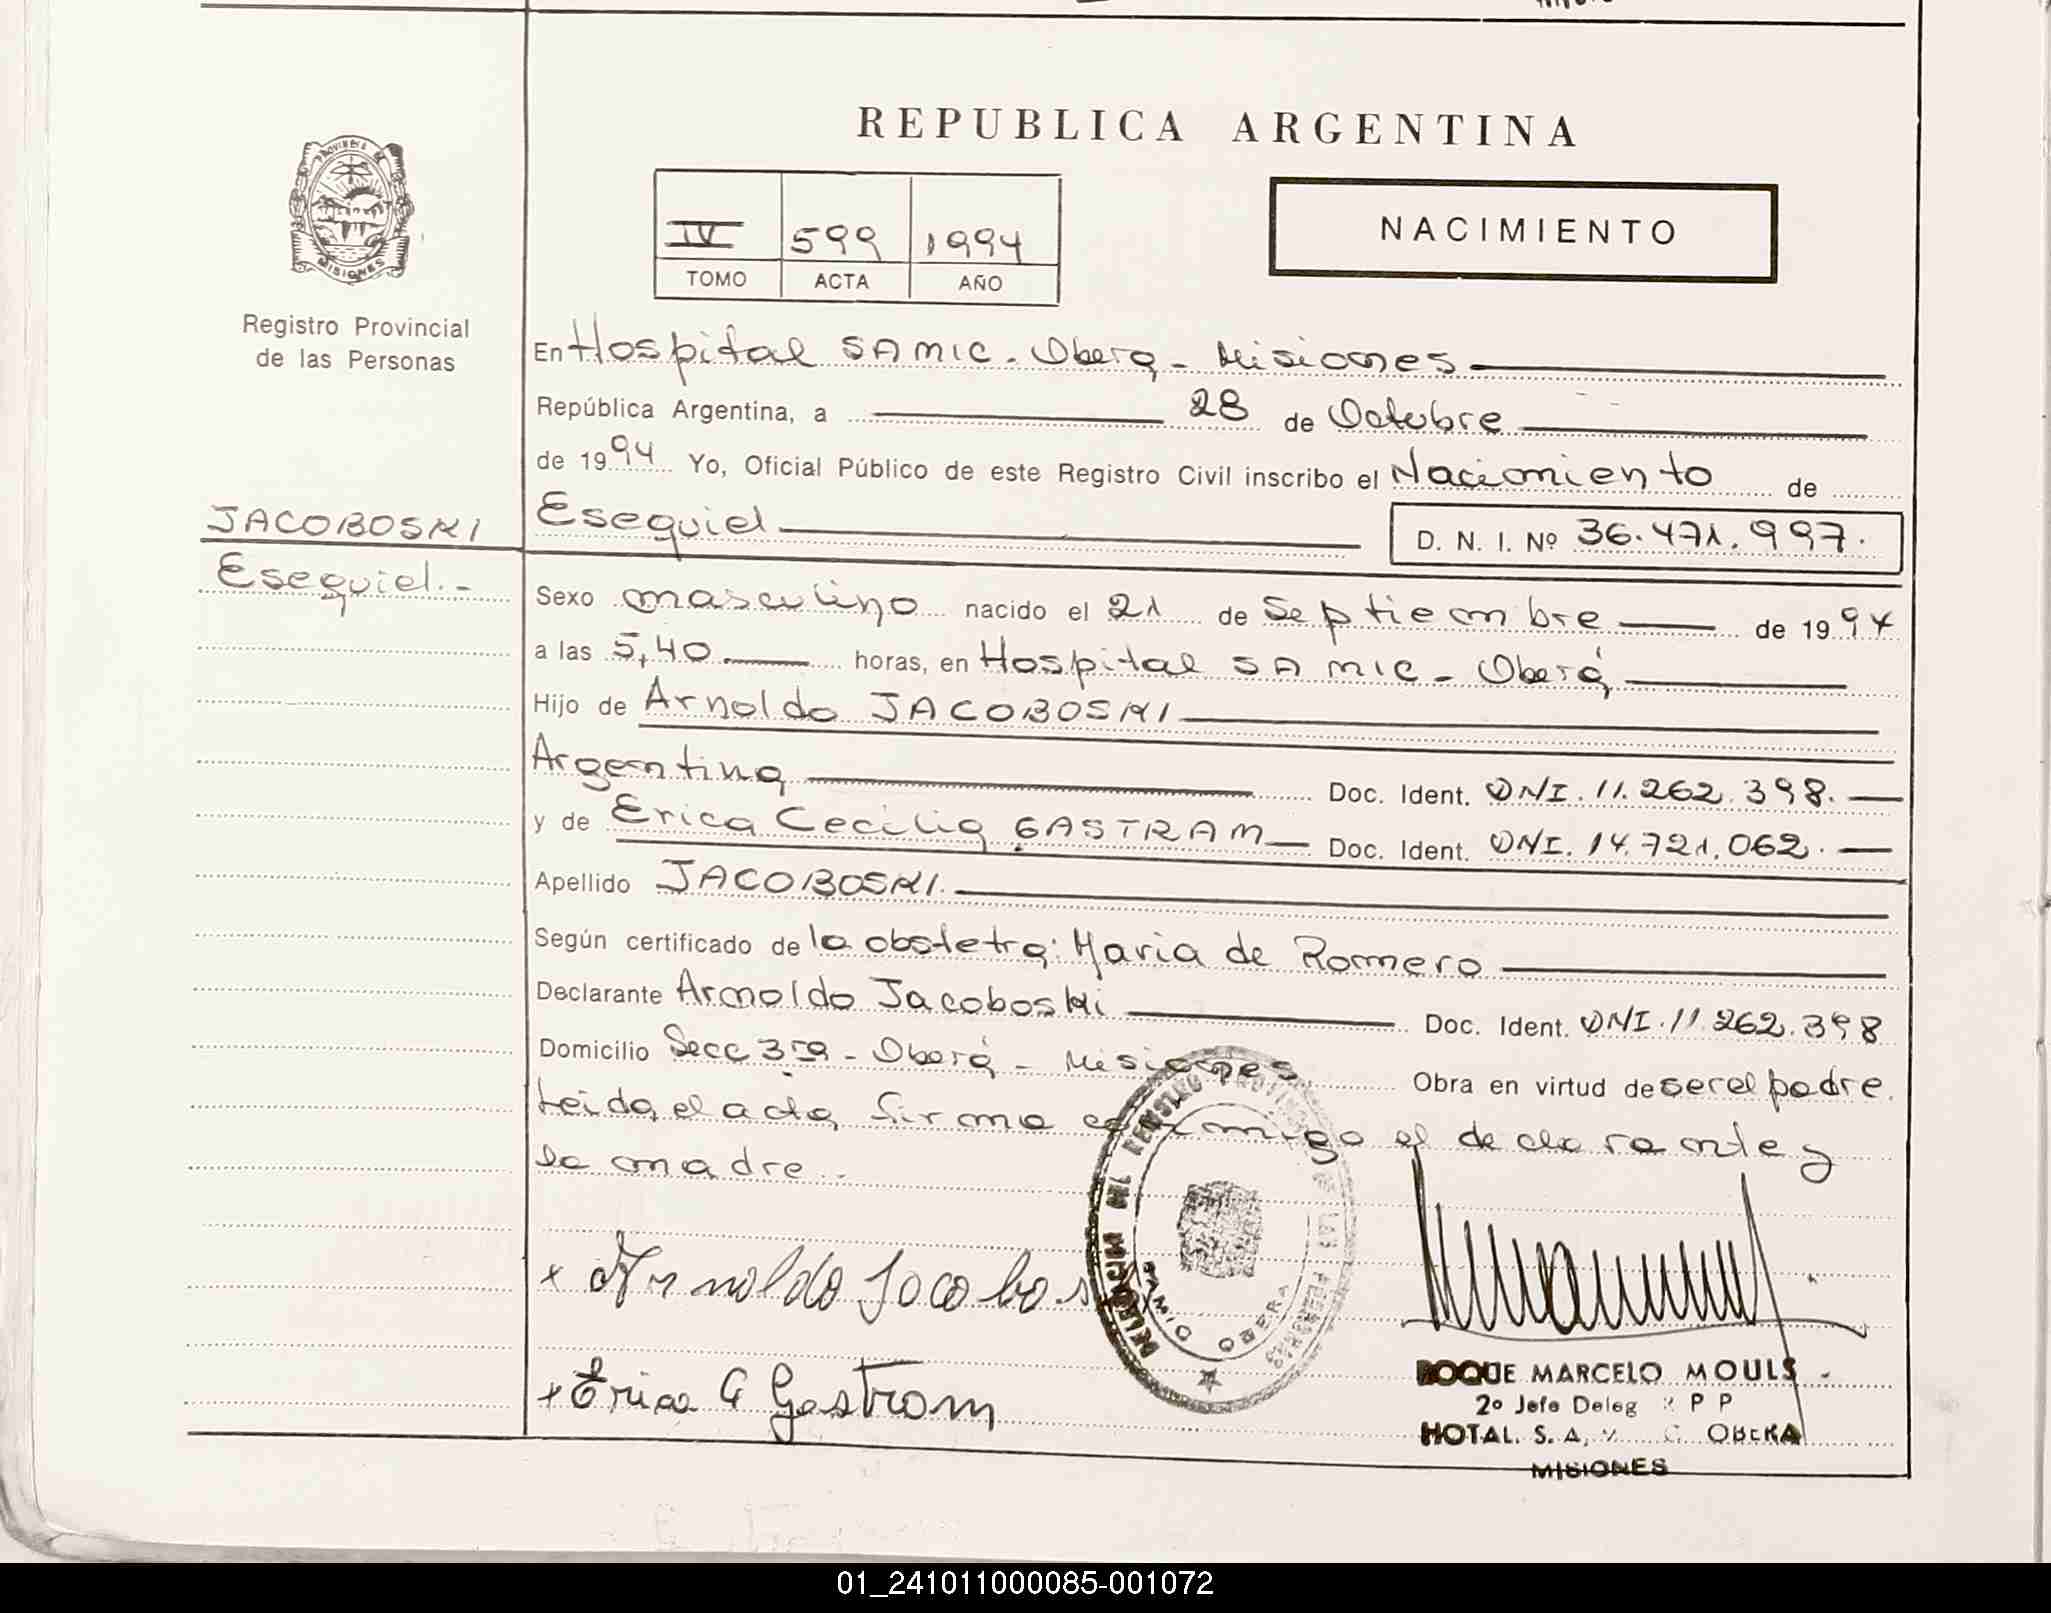 REPUBLICA ARGENTINA
PROVINCIA DE
MISIONES
Registro Provincial
de las Personas
IV 599 1994
TOMO ACTA AÑO
NACIMIENTO
En Hospital SAMIC - Obera - Misiones
República Argentina, a 28 de Octubre
de 1994 Yo, Oficial Público de este Registro Civil inscribo el Nacimiento de
JACOBOSKI
Esequiel.-
Esequiel D. N. I. Nº 36.471.997.
Sexo masculino nacido el 21 de Septiembre de 1994
a las 5,40 horas, en Hospital SAMIC - Oberá
Hijo de Arnoldo JACOBOSKI
Argentina Doc. Ident. DNI. 11.262.398.
y de Erica Cecilia GASTRAM Doc. Ident. DNI. 14.721.062.
Apellido JACOBOSKI.
Según certificado de la obstetra: Maria de Romero
Declarante Arnoldo Jacoboski Doc. Ident. DNI. 11.262.398
Domicilio Secc 3ra - Oberá - Misiones Obra en virtud de ser el padre.
Leida el acta firma conmigo el declarante y
la madre.-
x Arnoldo Jacobos
x Erica C Gastrom
OBERA
ROQUE MARCELO MOULS
2º Jefe Deleg P P
HOTAL. S. A. OBERA
MISIONES
01_241011000085-001072